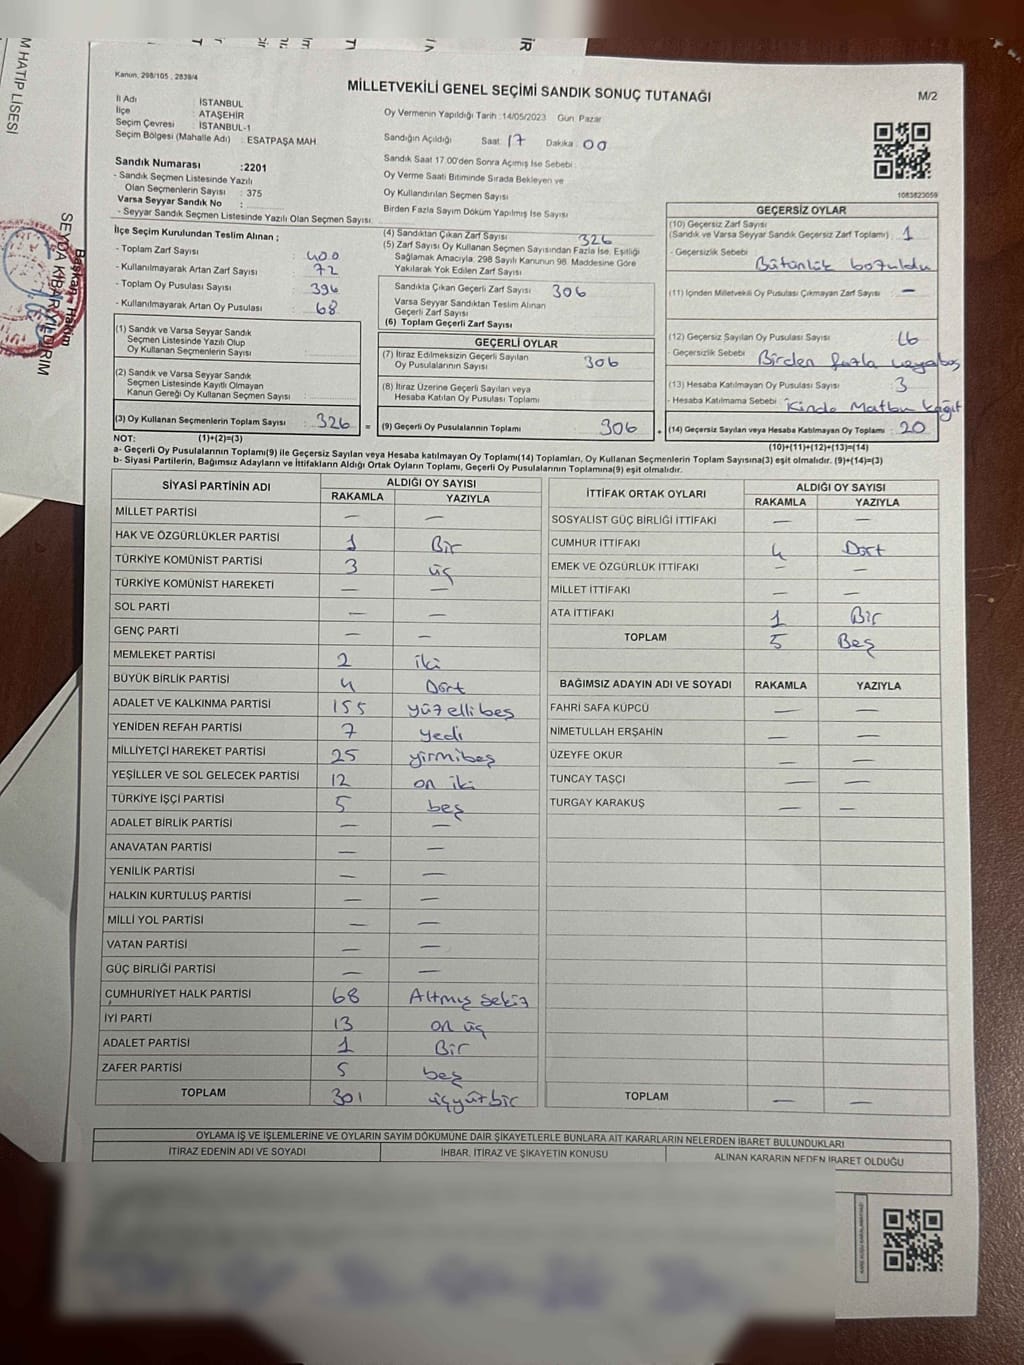 M HATİP LİSESİ
Başkan Hakim
SEYDA KIBAR YILDIRIM
Kanun, 298/105 , 2839/4
MİLLETVEKİLİ GENEL SEÇİMİ SANDIK SONUÇ TUTANAĞI
M/2
İl Adı : İSTANBUL
İlçe : ATAŞEHİR
Seçim Çevresi : İSTANBUL-1
Seçim Bölgesi (Mahalle Adı) : ESATPAŞA MAH.
Oy Vermenin Yapıldığı Tarih :14/05/2023 Gün: Pazar
Sandığın Açıldığı Saat: 17 Dakika : 00
Sandık Saat 17.00'den Sonra Açımış İse Sebebi :
Oy Verme Saati Bitiminde Sırada Bekleyen ve
Oy Kullandırılan Seçmen Sayısı
Birden Fazla Sayım Döküm Yapılmış İse Sayısı
1083623059
Sandık Numarası :2201
- Sandık Seçmen Listesinde Yazılı
Olan Seçmenlerin Sayısı : 375
Varsa Seyyar Sandık No :
- Seyyar Sandık Seçmen Listesinde Yazılı Olan Seçmen Sayısı:
İlçe Seçim Kurulundan Teslim Alınan ;
- Toplam Zarf Sayısı : 400
- Kullanılmayarak Artan Zarf Sayısı : 72
- Toplam Oy Pusulası Sayısı : 396
- Kullanılmayarak Artan Oy Pusulası : 68
(1) Sandık ve Varsa Seyyar Sandık
Seçmen Listesinde Yazılı Olup
Oy Kullanan Seçmenlerin Sayısı :
(2) Sandık ve Varsa Seyyar Sandık
Seçmen Listesinde Kayıtlı Olmayan
Kanun Gereği Oy Kullanan Seçmen Sayısı :
(3) Oy Kullanan Seçmenlerin Toplam Sayısı : 326 =
(4) Sandıktan Çıkan Zarf Sayısı 326
(5) Zarf Sayısı Oy Kullanan Seçmen Sayısından Fazla İse, Eşitliği
Sağlamak Amacıyla, 298 Sayılı Kanunun 98. Maddesine Göre
Yakılarak Yok Edilen Zarf Sayısı
Sandıkta Çıkan Geçerli Zarf Sayısı 306
Varsa Seyyar Sandıktan Teslim Alınan
Geçerli Zarf Sayısı
(6) Toplam Geçerli Zarf Sayısı
GEÇERLİ OYLAR
(7) İtiraz Edilmeksizin Geçerli Sayılan
Oy Pusulalarının Sayısı : 306
(8) İtiraz Üzerine Geçerli Sayılan veya
Hesaba Katılan Oy Pusulası Toplamı
(9) Geçerli Oy Pusulalarının Toplamı : 306 +
GEÇERSİZ OYLAR
(10) Geçersiz Zarf Sayısı
(Sandık ve Varsa Seyyar Sandık Geçersiz Zarf Toplamı) : 1
- Geçersizlik Sebebi : Bütünlük bozuldu
(11) İçinden Milletvekili Oy Pusulası Çıkmayan Zarf Sayısı : —
(12) Geçersiz Sayılan Oy Pusulası Sayısı : 16
- Geçersizlik Sebebi : Birden fazla veya boş
(13) Hesaba Katılmayan Oy Pusulası Sayısı : 3
- Hesaba Katılmama Sebebi : içinde Matbu kağıt
(14) Geçersiz Sayılan veya Hesaba Katılmayan Oy Toplamı : 20
NOT: (1)+(2)=(3)
(10)+(11)+(12)+(13)=(14)
a- Geçerli Oy Pusulalarının Toplamı(9) ile Geçersiz Sayılan veya Hesaba katılmayan Oy Toplamı(14) Toplamları, Oy Kullanan Seçmenlerin Toplam Sayısına(3) eşit olmalıdır. (9)+(14)=(3)
b- Siyasi Partilerin, Bağımsız Adayların ve İttifakların Aldığı Ortak Oyların Toplamı, Geçerli Oy Pusulalarının Toplamına(9) eşit olmalıdır.
SİYASİ PARTİNİN ADI ALDIĞI OY SAYISI
RAKAMLA YAZIYLA
MİLLET PARTİSİ — —
HAK VE ÖZGÜRLÜKLER PARTİSİ 1 Bir
TÜRKİYE KOMÜNİST PARTİSİ 3 üç
TÜRKİYE KOMÜNİST HAREKETİ — —
SOL PARTİ — —
GENÇ PARTİ — —
MEMLEKET PARTİSİ 2 iki
BÜYÜK BİRLİK PARTİSİ 4 Dört
ADALET VE KALKINMA PARTİSİ 155 yüzellibeş
YENİDEN REFAH PARTİSİ 7 yedi
MİLLİYETÇİ HAREKET PARTİSİ 25 yirmibeş
YEŞİLLER VE SOL GELECEK PARTİSİ 12 on iki
TÜRKİYE İŞÇİ PARTİSİ 5 beş
ADALET BİRLİK PARTİSİ — —
ANAVATAN PARTİSİ — —
YENİLİK PARTİSİ — —
HALKIN KURTULUŞ PARTİSİ — —
MİLLİ YOL PARTİSİ — —
VATAN PARTİSİ — —
GÜÇ BİRLİĞİ PARTİSİ — —
CUMHURİYET HALK PARTİSİ 68 Altmış Sekiz
İYİ PARTİ 13 on üç
ADALET PARTİSİ 1 Bir
ZAFER PARTİSİ 5 beş
TOPLAM 301 üçyüzbir
İTTİFAK ORTAK OYLARI ALDIĞI OY SAYISI
RAKAMLA YAZIYLA
SOSYALİST GÜÇ BİRLİĞİ İTTİFAKI — —
CUMHUR İTTİFAKI 4 Dört
EMEK VE ÖZGÜRLÜK İTTİFAKI — —
MİLLET İTTİFAKI — —
ATA İTTİFAKI 1 Bir
TOPLAM 5 Beş
BAĞIMSIZ ADAYIN ADI VE SOYADI RAKAMLA YAZIYLA
FAHRİ SAFA KÜPCÜ — —
NİMETULLAH ERŞAHİN — —
ÜZEYFE OKUR — —
TUNCAY TAŞÇI — —
TURGAY KARAKUŞ — —
TOPLAM — —
OYLAMA İŞ VE İŞLEMLERİNE VE OYLARIN SAYIM DÖKÜMÜNE DAİR ŞİKAYETLERLE BUNLARA AİT KARARLARIN NELERDEN İBARET BULUNDUKLARI
İTİRAZ EDENİN ADI VE SOYADI İHBAR, İTİRAZ VE ŞİKAYETİN KONUSU ALINAN KARARIN NEDEN İBARET OLDUĞU